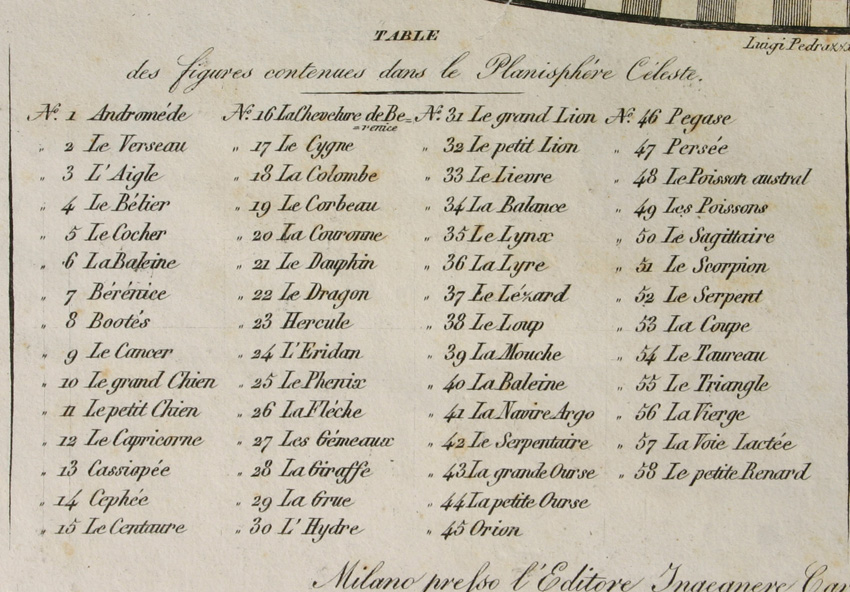 Luigi Pedra
TABLE
des figures contenues dans le Planisphére Céleste.
N.º 1 Androméde
„ 2 Le Verseau
„ 3 L'Aigle
„ 4 Le Bélier
„ 5 Le Cocher
„ 6 La Baleine
„ 7 Bérénice
„ 8 Bootés
„ 9 Le Cancer
„ 10 Le grand Chien
„ 11 Le petit Chien
„ 12 Le Capricorne
„ 13 Cassiopée
„ 14 Cephée
„ 15 Le Centaure
N.º 16 La Chevelure de Be=
=renice
„ 17 Le Cygne
„ 18 La Colombe
„ 19 Le Corbeau
„ 20 La Couronne
„ 21 Le Dauphin
„ 22 Le Dragon
„ 23 Hercule
„ 24 L'Eridan
„ 25 Le Phenix
„ 26 La Fléche
„ 27 Les Gémeaux
„ 28 La Giraffe
„ 29 La Grue
„ 30 L'Hydre
N.º 31 Le grand Lion
„ 32 Le petit Lion
„ 33 Le Lievre
„ 34 La Balance
„ 35 Le Lynx
„ 36 La Lyre
„ 37 Le Lézard
„ 38 Le Loup
„ 39 La Mouche
„ 40 La Baleine
„ 41 La Navire Argo
„ 42 Le Serpentaire
„ 43 La grande Ourse
„ 44 La petite Ourse
„ 45 Orion
N.º 46 Pegase
„ 47 Persée
„ 48 Le Poisson austral
„ 49 Les Poissons
„ 50 Le Sagittaire
„ 51 Le Scorpion
„ 52 Le Serpent
„ 53 La Coupe
„ 54 Le Taureau
„ 55 Le Triangle
„ 56 La Vierge
„ 57 La Voie Lactée
„ 58 Le petite Renard
Milano presso l'Editore Ingegnere Car